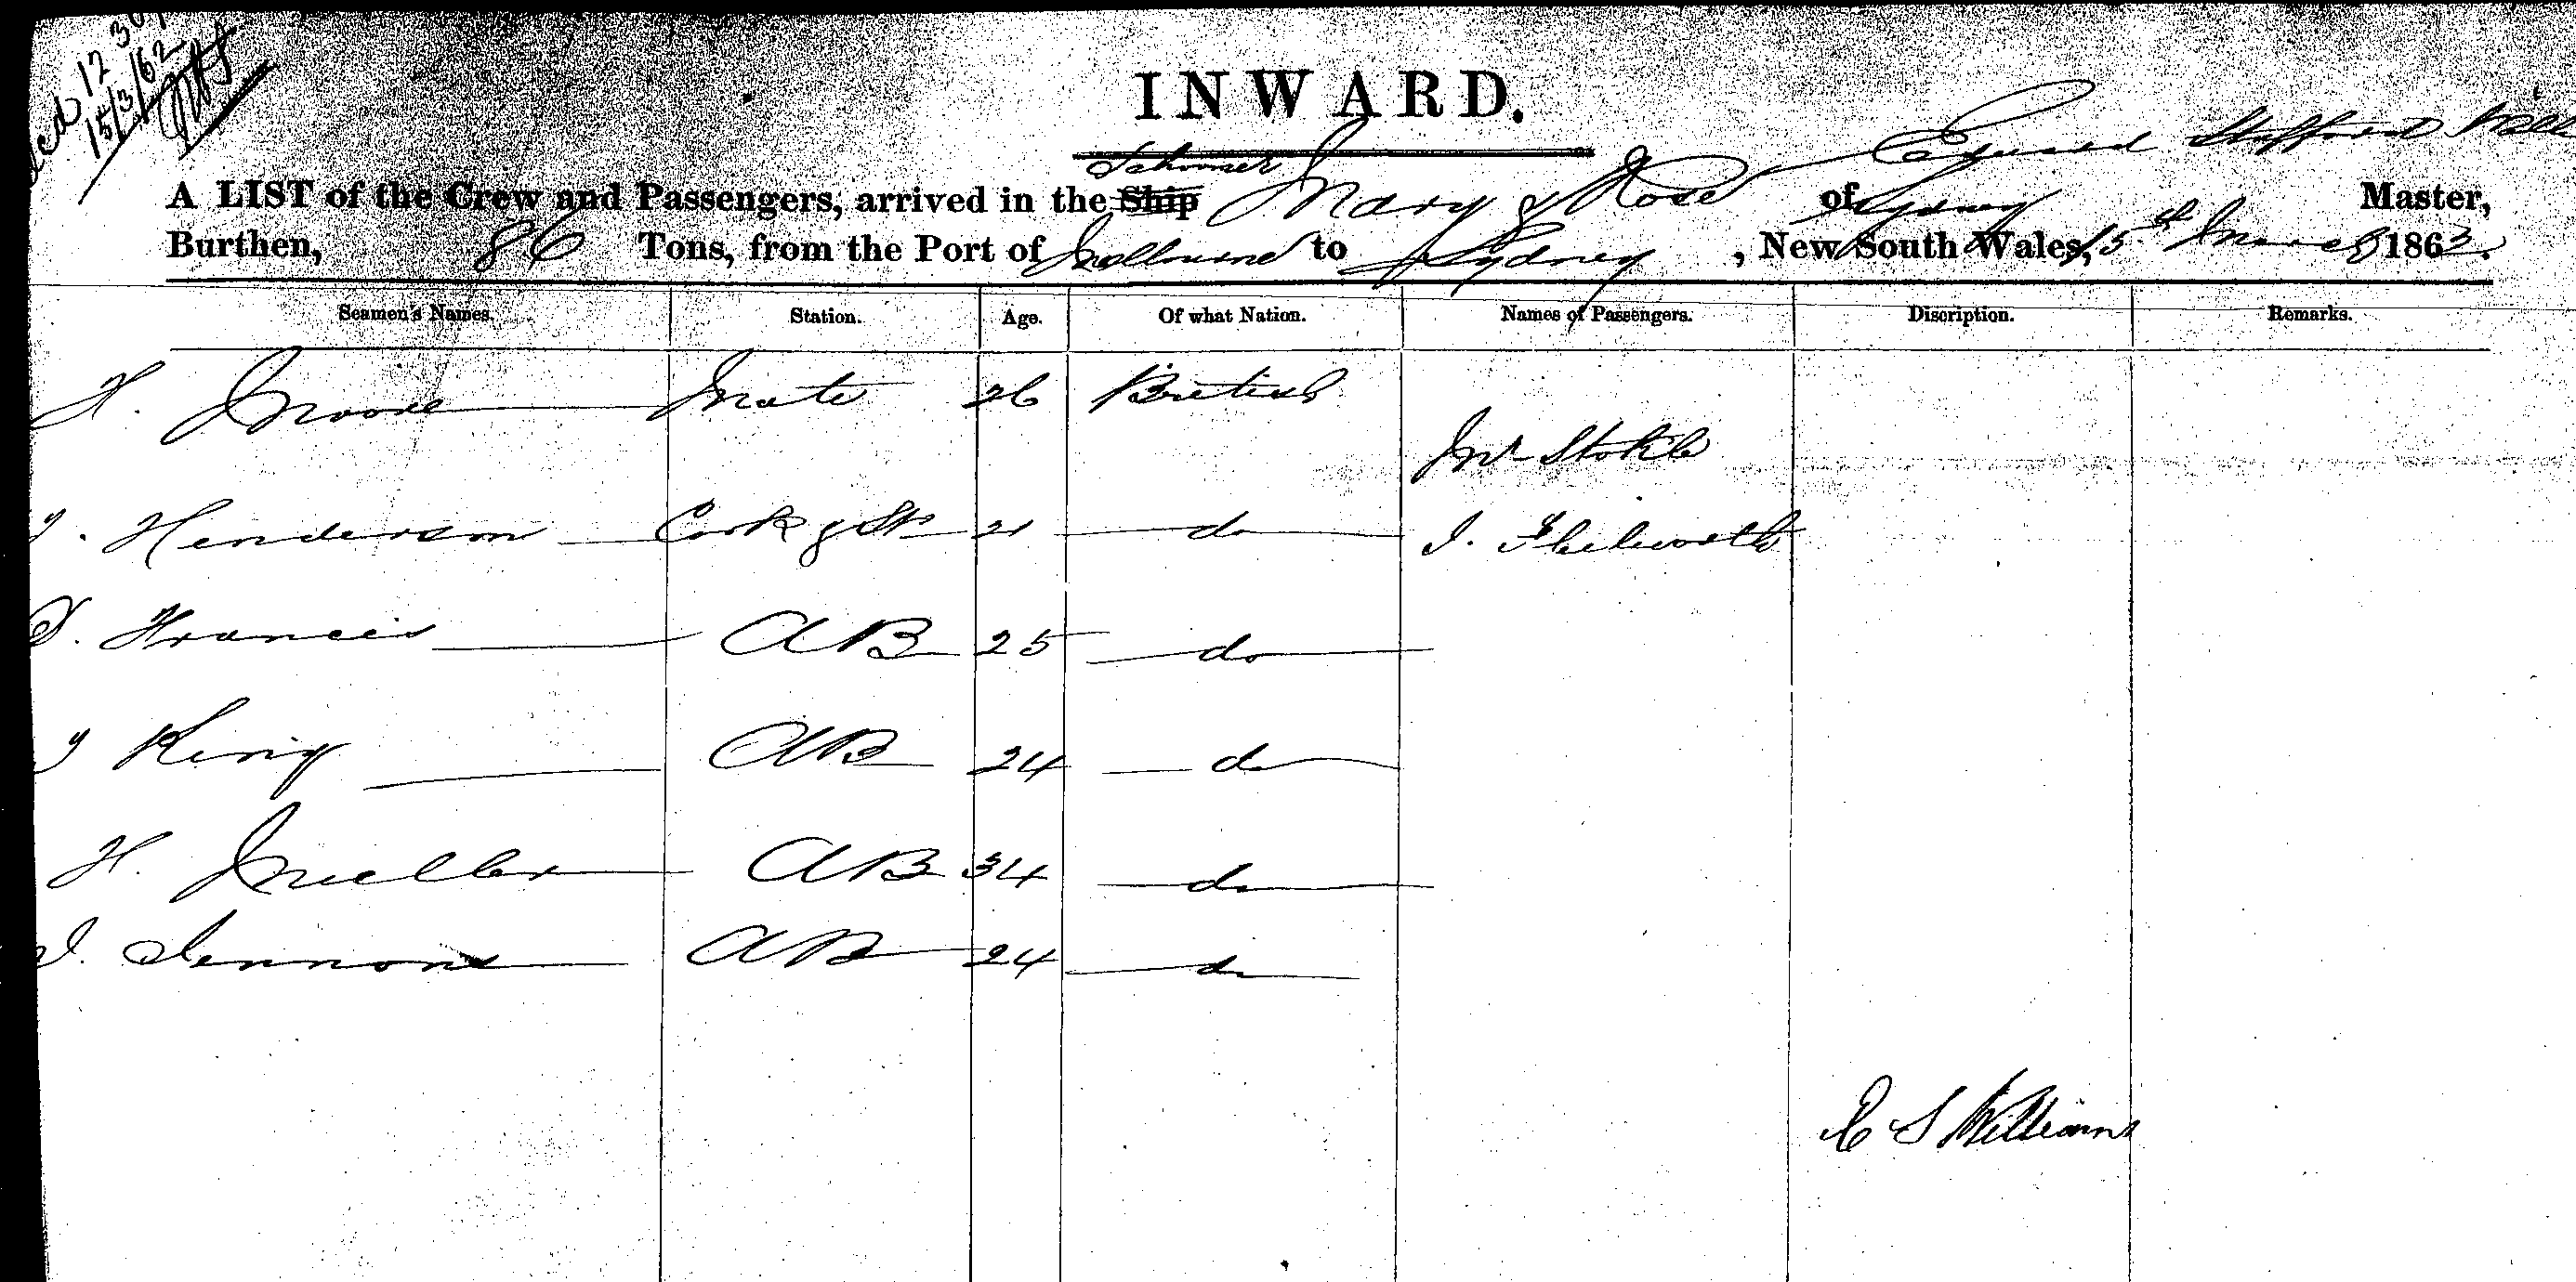 12 30
15/3/62
INWARD.
Schooner
Edward Stafford
A LIST of the Crew and Passengers, arrived in the Ship Mary & Rose of Sydney Master,
Burthen, 86 Tons, from the Port of Melbourne to Sydney, New South Wales, 15th March 1863.
Seamen's Names. Station. Age. Of what Nation. Names of Passengers. Discription. Remarks.
H. Moore Mate 26 British
Mr
Henderson Cook & St 21 do J.
Francis AB 25 do
King AB 24 do
H. AB 34 do
AB 24 do
E S Williams